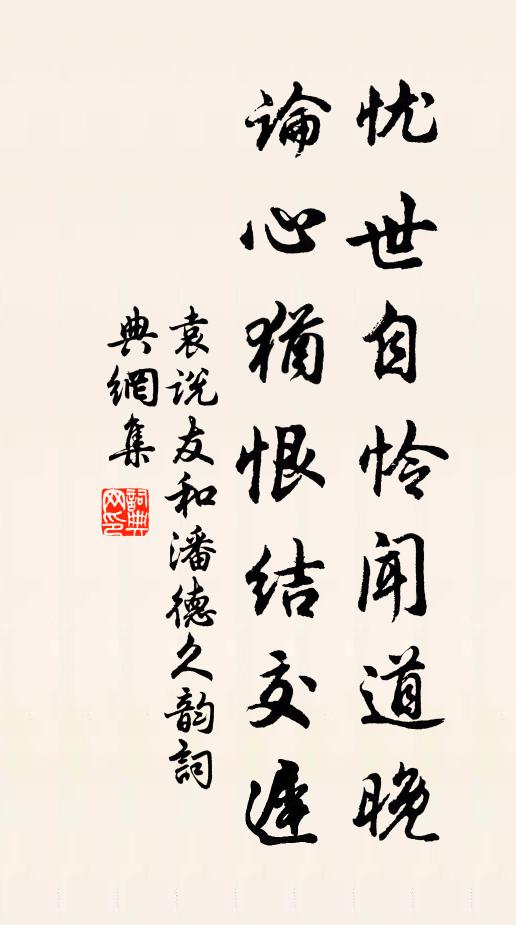 忧世自怜闻道晚
論心猶恨結交遲
袁说友和潘德久韵詞
典網集
詞典网印